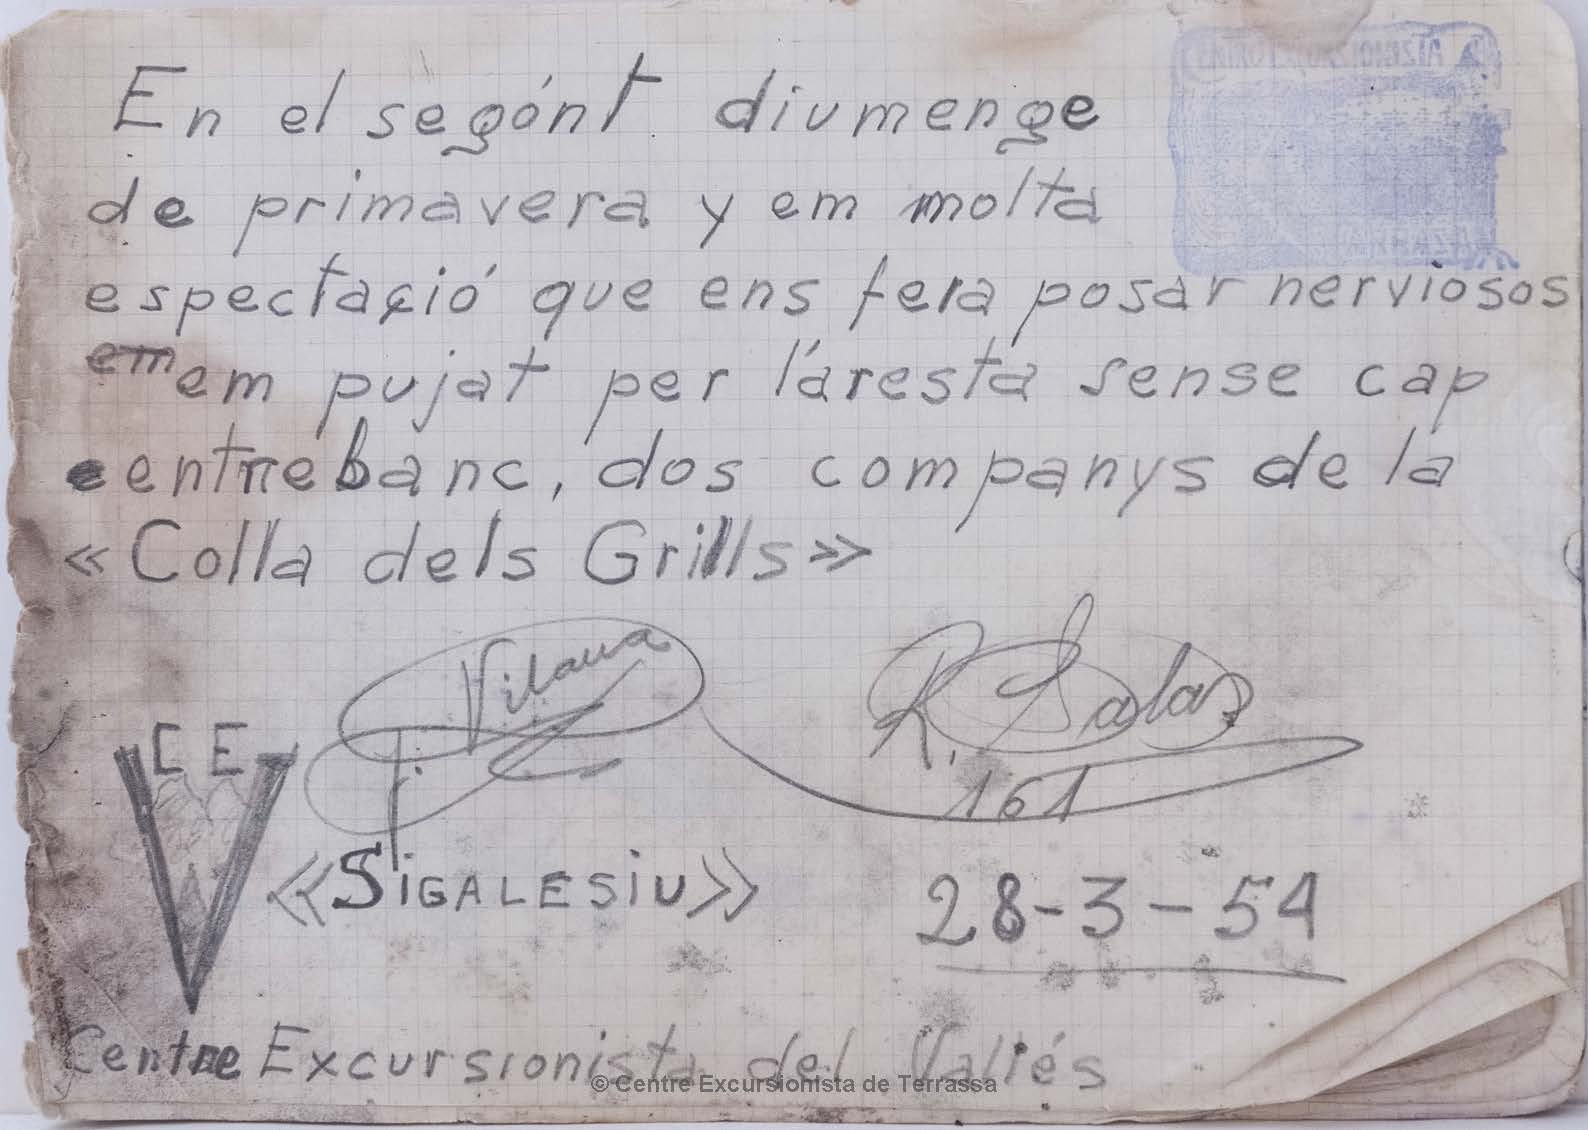 En el segónt diumenge
de primavera y em molta
espectació que ens fera posar nerviosos
em em pujat per l'áresta sense cap
entrebanc, dos companys de la
«Colla dels Grills»
J. Vilana
R. Salas
161
C E
V
«SIGALESIU»
28-3-54
Centre Excursionista del Vallés
© Centre Excursionista de Terrassa